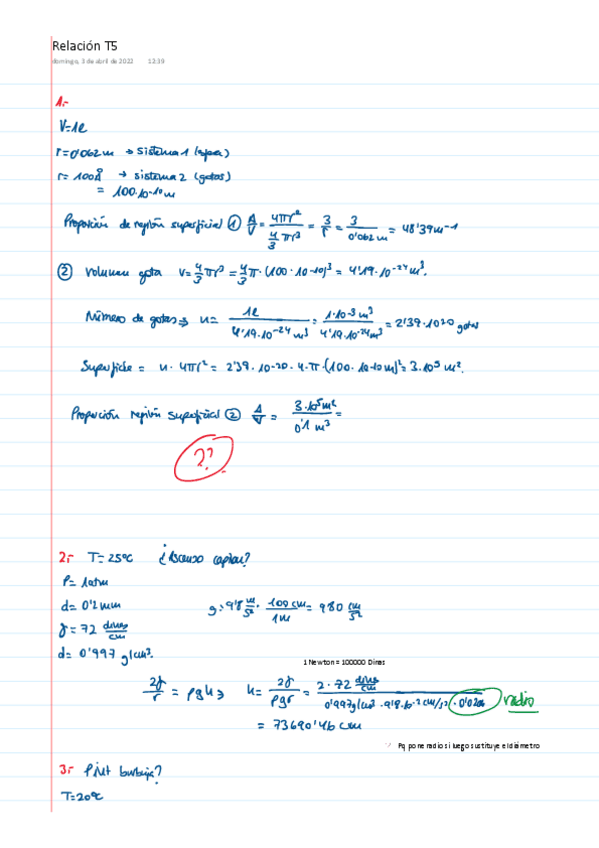 Relación T5
domingo, 3 de abril de 2022 12:39
1.-
V=1l
r=0'062m → Sistema 1 (esfera)
r= 100Å → sistema 2 (gotas)
= 100·10-10 m
Proporción de región superficial ① A/V = 4πr²/(4/3 πr³) = 3/r = 3/0'062m = 48'39m-1
② Volumen gota V=4/3πr³ = 4/3π·(100·10-10)³ = 4'19·10-24m³.
Número de gotas ⇒ n= 1l/4'19·10-24m³ = 1·10-3m³/4'19·10-24m³ = 2'39·1020 gotas
Superficie = n·4πr² = 2'39·10-20·4·π·(100·10-10m)² = 3·10⁵m².
Proporción región superficial ② A/V = 3·10⁵m²/0'1m³ =
??
2.- T=25ºC ¿Ascenso capilar?
P= 1atm
d= 0'2mm g=9'8 m/s² · 100cm/1m = 980 cm/s²
γ=72 dinas/cm
d= 0'997 g/cm³.
1 Newton = 100000 Dinas
2γ/r = ρgh ⇒ h= 2γ/ρgr = 2·72 dinas/cm / 0'997g/cm³·9'8·10-2cm/s²·0'02cm radio
= 73690'46 cm
Pq pone radio si luego sustituye el diámetro
3.- Pint burbuja?
T=20ºC